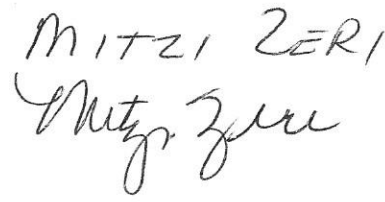 MITZI ZERI
Mitzi Zeri